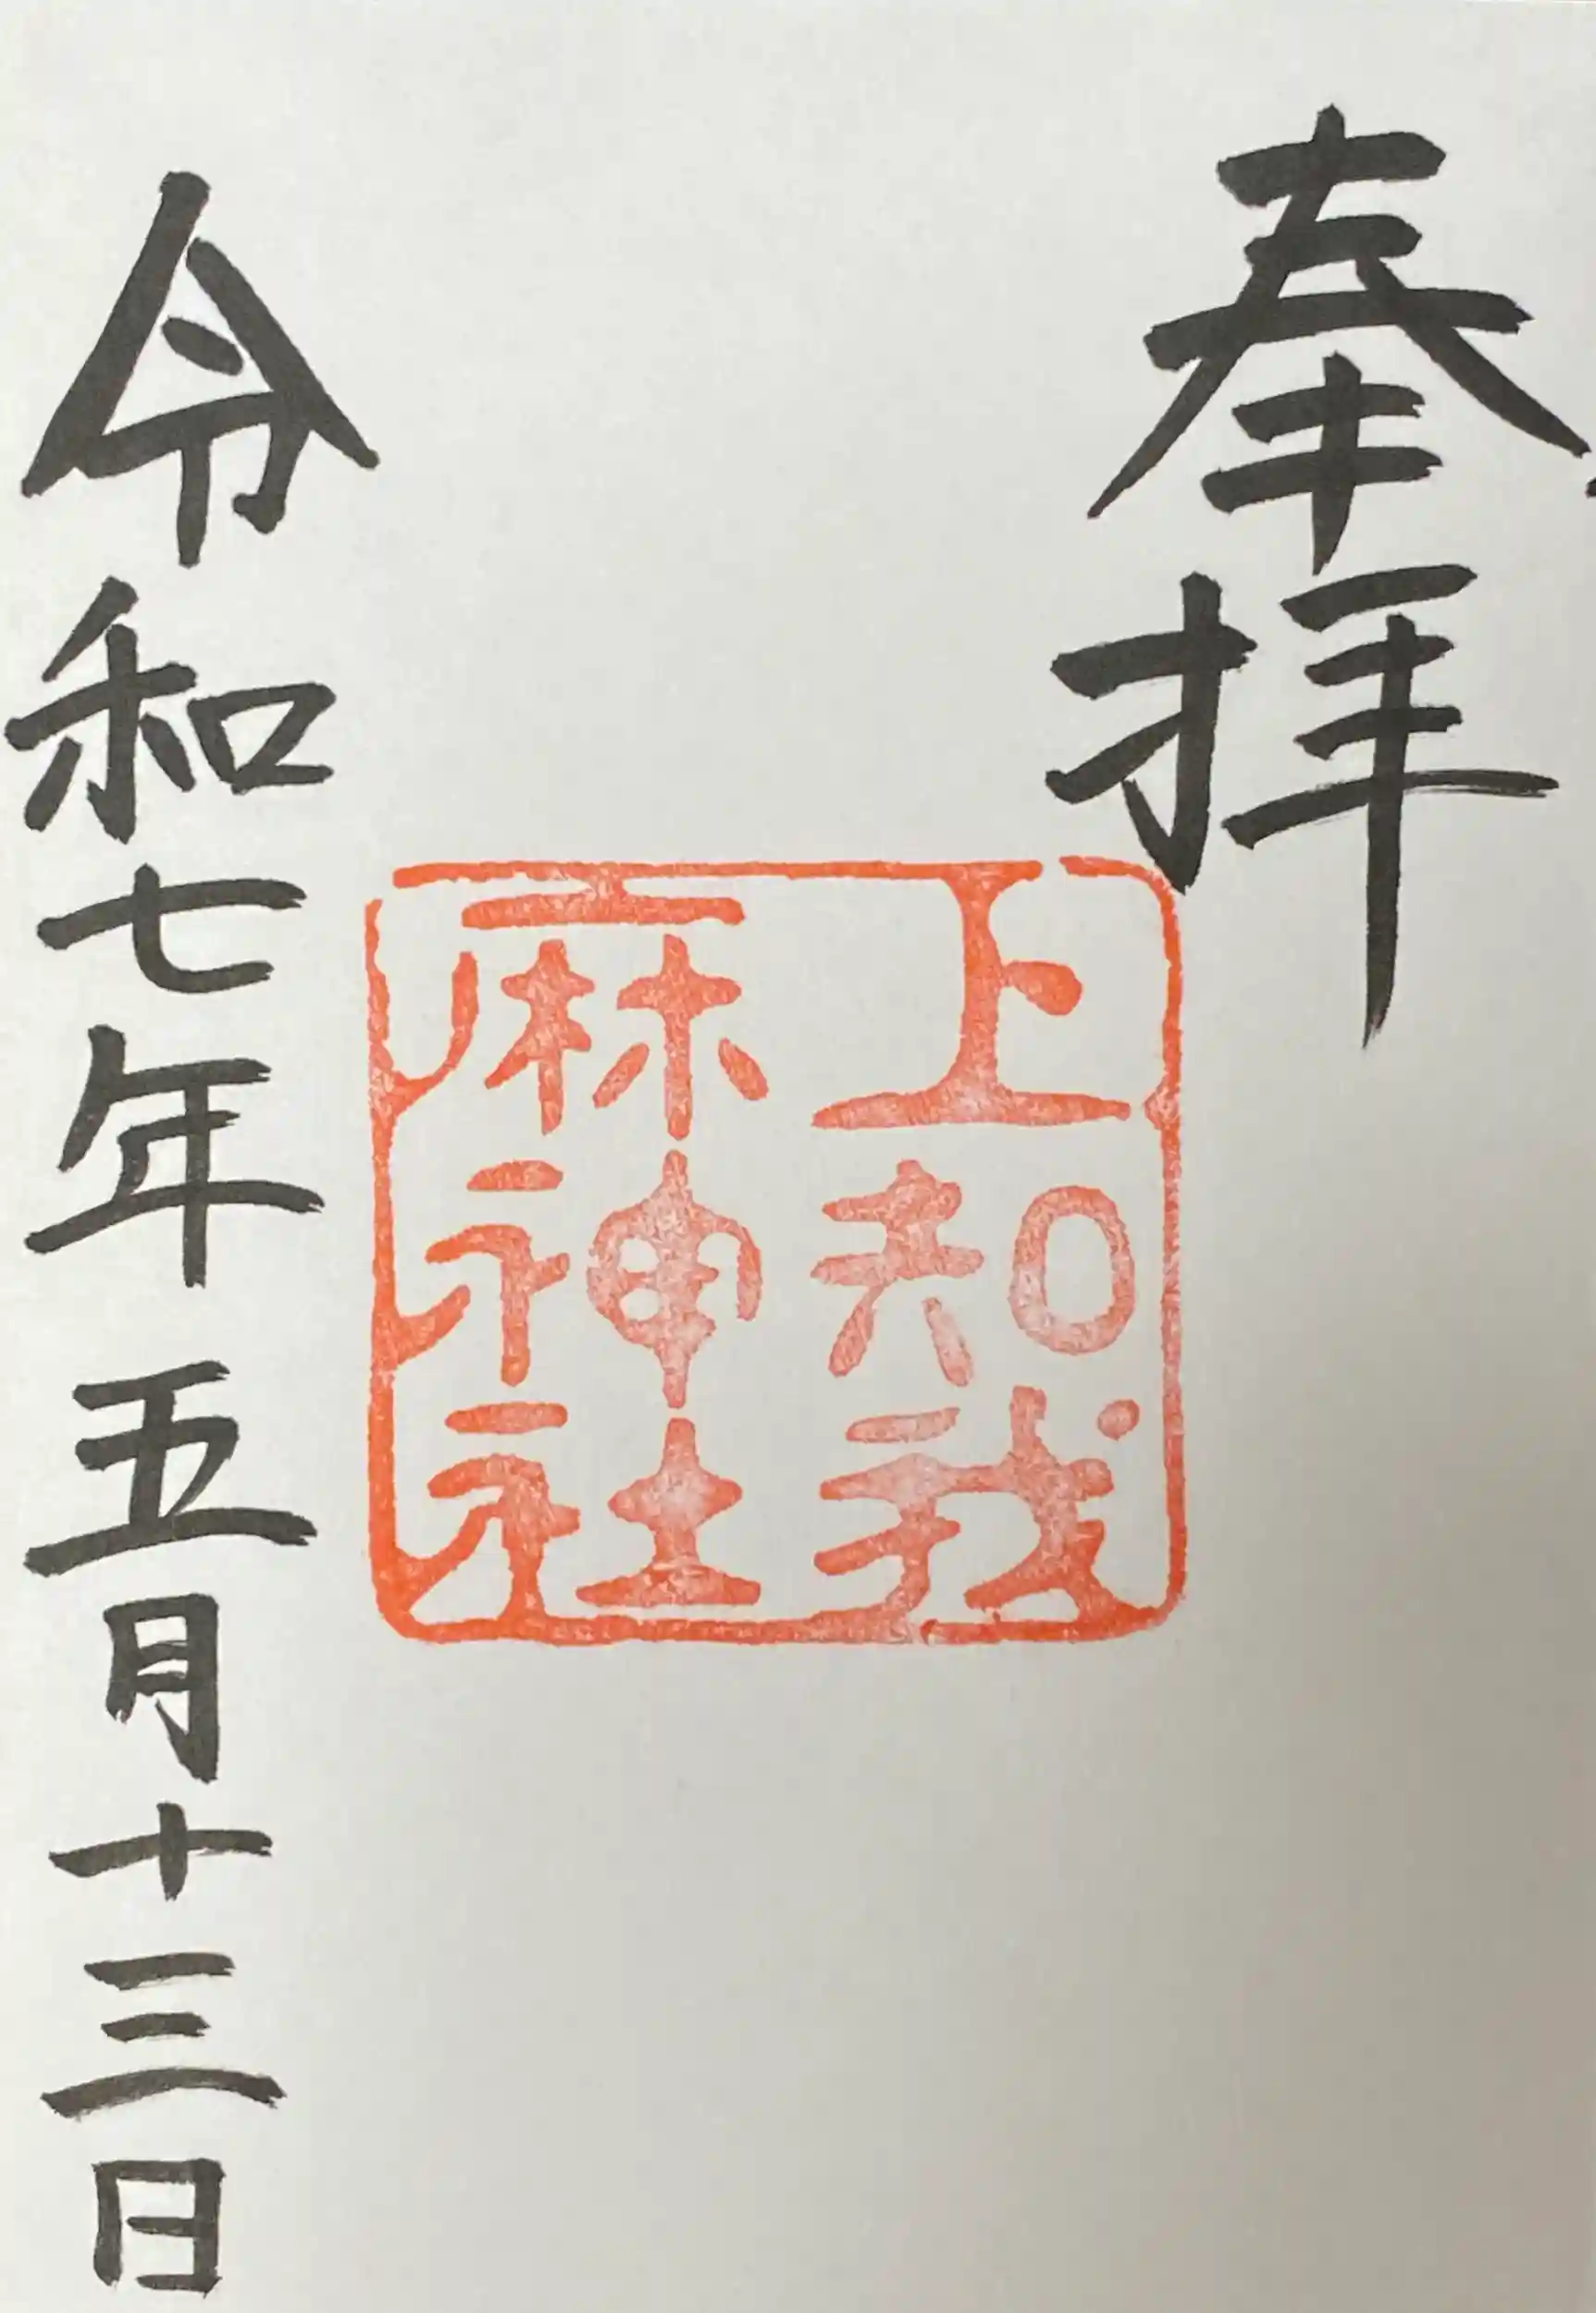 奉拝
上知我
麻神社
令和七年五月十三日